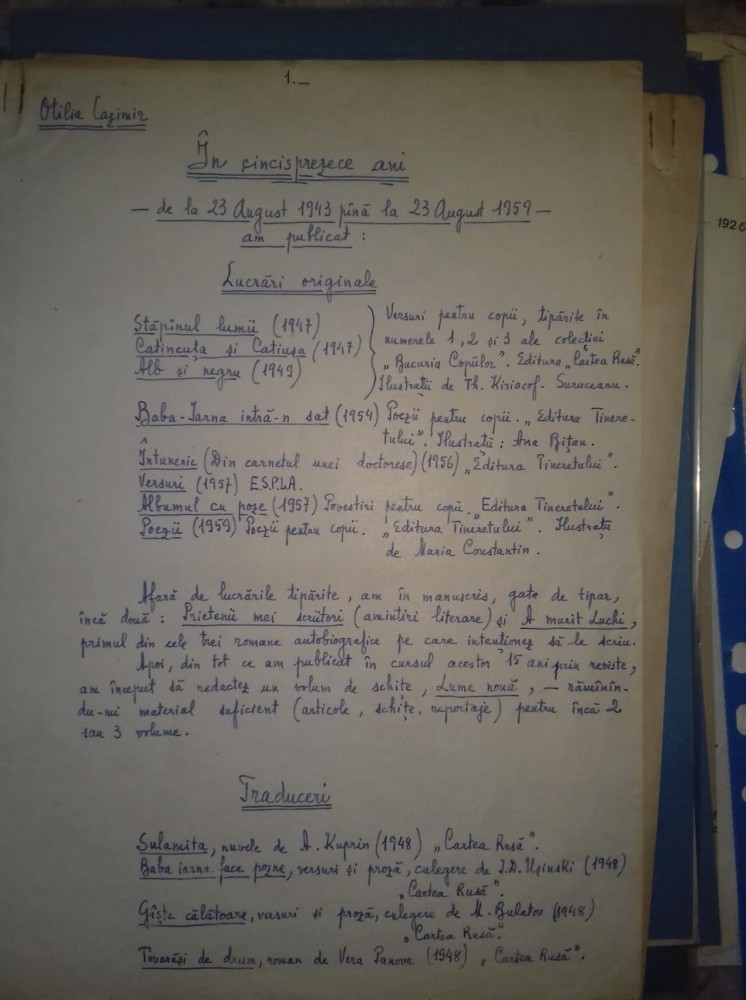 1.—
Otilia Cazimir
În cincisprezece ani
— de la 23 August 1943 pînă la 23 August 1959 —
am publicat :
Lucrări originale
Stăpînul lumii (1947)
Catincuța și Catiușa (1947)
Alb și negru (1949)
Versuri pentru copii, tipărite în
numerele 1, 2 și 3 ale colecției
„Bucuria Copiilor”. Editura „Cartea Rusă”.
Ilustrații de Th. Kiriacof-Suruceanu.
Baba-Iarna intră-n sat (1954) Poezii pentru copii. „Editura Tinere-
tului”. Ilustrații : Ana Bițan.
Întuneric (Din carnetul unei doctorese) (1956) „Editura Tineretului”.
Versuri (1957) E.S.P.L.A.
Albumul cu poze (1957) Povestiri pentru copii. „Editura Tineretului”.
Poezii (1959) Poezii pentru copii. „Editura Tineretului”. Ilustrații
de Maria Constantin.
Afară de lucrările tipărite, am în manuscris, gata de tipar,
încă două : Prietenii mei scriitori (amintiri literare) și A murit Luchi,
primul din cele trei romane autobiografice pe care intenționez să le scriu.
Apoi, din tot ce am publicat în cursul acestor 15 ani prin reviste,
am început să redactez un volum de schițe, Lume nouă, — rămînîn-
du-mi material suficient (articole, schițe, reportaje) pentru încă 2
sau 3 volume.
Traduceri
Sulamita, nuvele de A. Kuprin (1948) „Cartea Rusă”.
Baba iarna face pozne, versuri și proză, culegere de I.D. Ușinski (1948)
„Cartea Rusă”.
Gîște călătoare, versuri si proză, culegere de M. Buletov (1948)
„Cartea Rusă”.
Tovarăși de drum, roman de Vera Panova (1948) „Cartea Rusă”.
1926